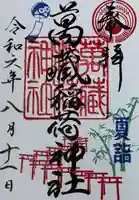 奉拝
夏詣
萬蔵稲荷神社
萬蔵
神社
令和六年八月十一日